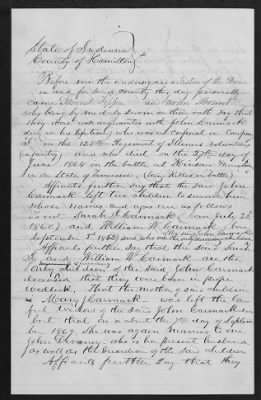 State of Indiana
County of Hamilton
Before me the undersigned a
in and for said county this day personally
came
who being by me duly sworn on their oath say that
they were well acquainted with John Carmack
in his lifetime, who was a Corporal in Company
on the 125th Regiment of Illinois Volunteer
Infantry, and who died on the 27th day of
June 1864 in the battle at Kenesaw Mountain
in the State of Tennessee, (being Killed in battle)
Affiants further say that the said John
Carmack left two children surviving him
whose names and ages are as follows
to wit Sarah J. Carmack (born July 22
1860) and William W. Carmack (born
September 1862)
Affiants further say that the said Sarah
J. and William W. Carmack are the
only children of the said John Carmack
deceased that they were born in proper
wedlock, That the mother of said children
Mary Carmack was left the law
ful widow of the said John Carmack dec
but that on or about the 7th day of Septem
ber 1869 she was again married to one
John Devaney who is her present husband
as well as the Guardian of the said children
Affiants further say that they